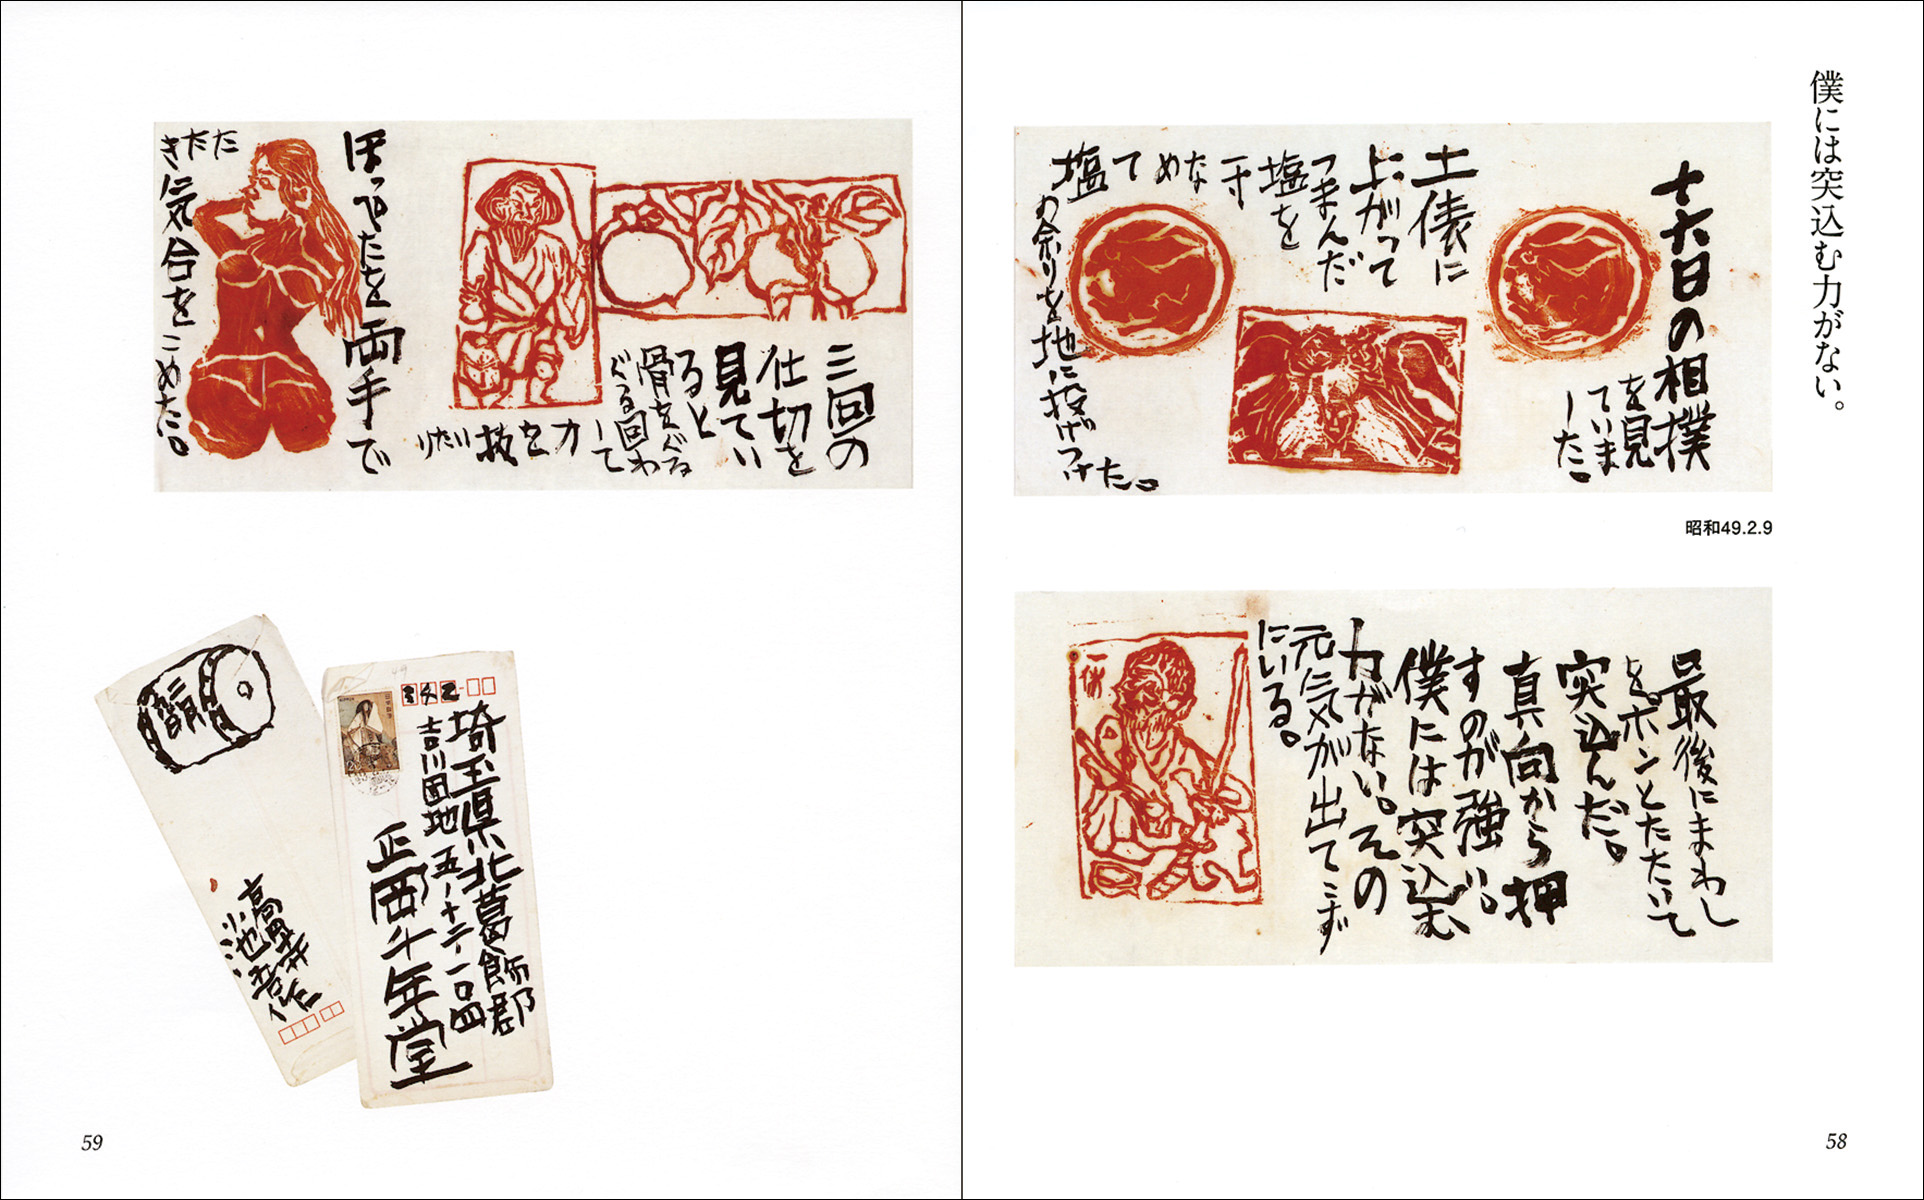 僕には突込む力がない。
十六日の相撲
を見
ていま
した。
土俵に
上がって
つまんだ
塩を
一寸
なめて
塩
の余りを地に投げつけた。
昭和49.2.9
最後にまわし
をポンとたたいて
突込んだ。
真向から押
すのが強い。
僕には突込む
力がない。その
元気が出てこず
にいる。
一休
58
三回の
仕切を
見てい
ると
肩をぐる
ぐる回わ
して
力を抜いたり
ほっぺたを両手で
たた
き気合をこめた。
342
埼玉県北葛飾郡
吉川団地五ー十二ー一〇四
千年堂
59